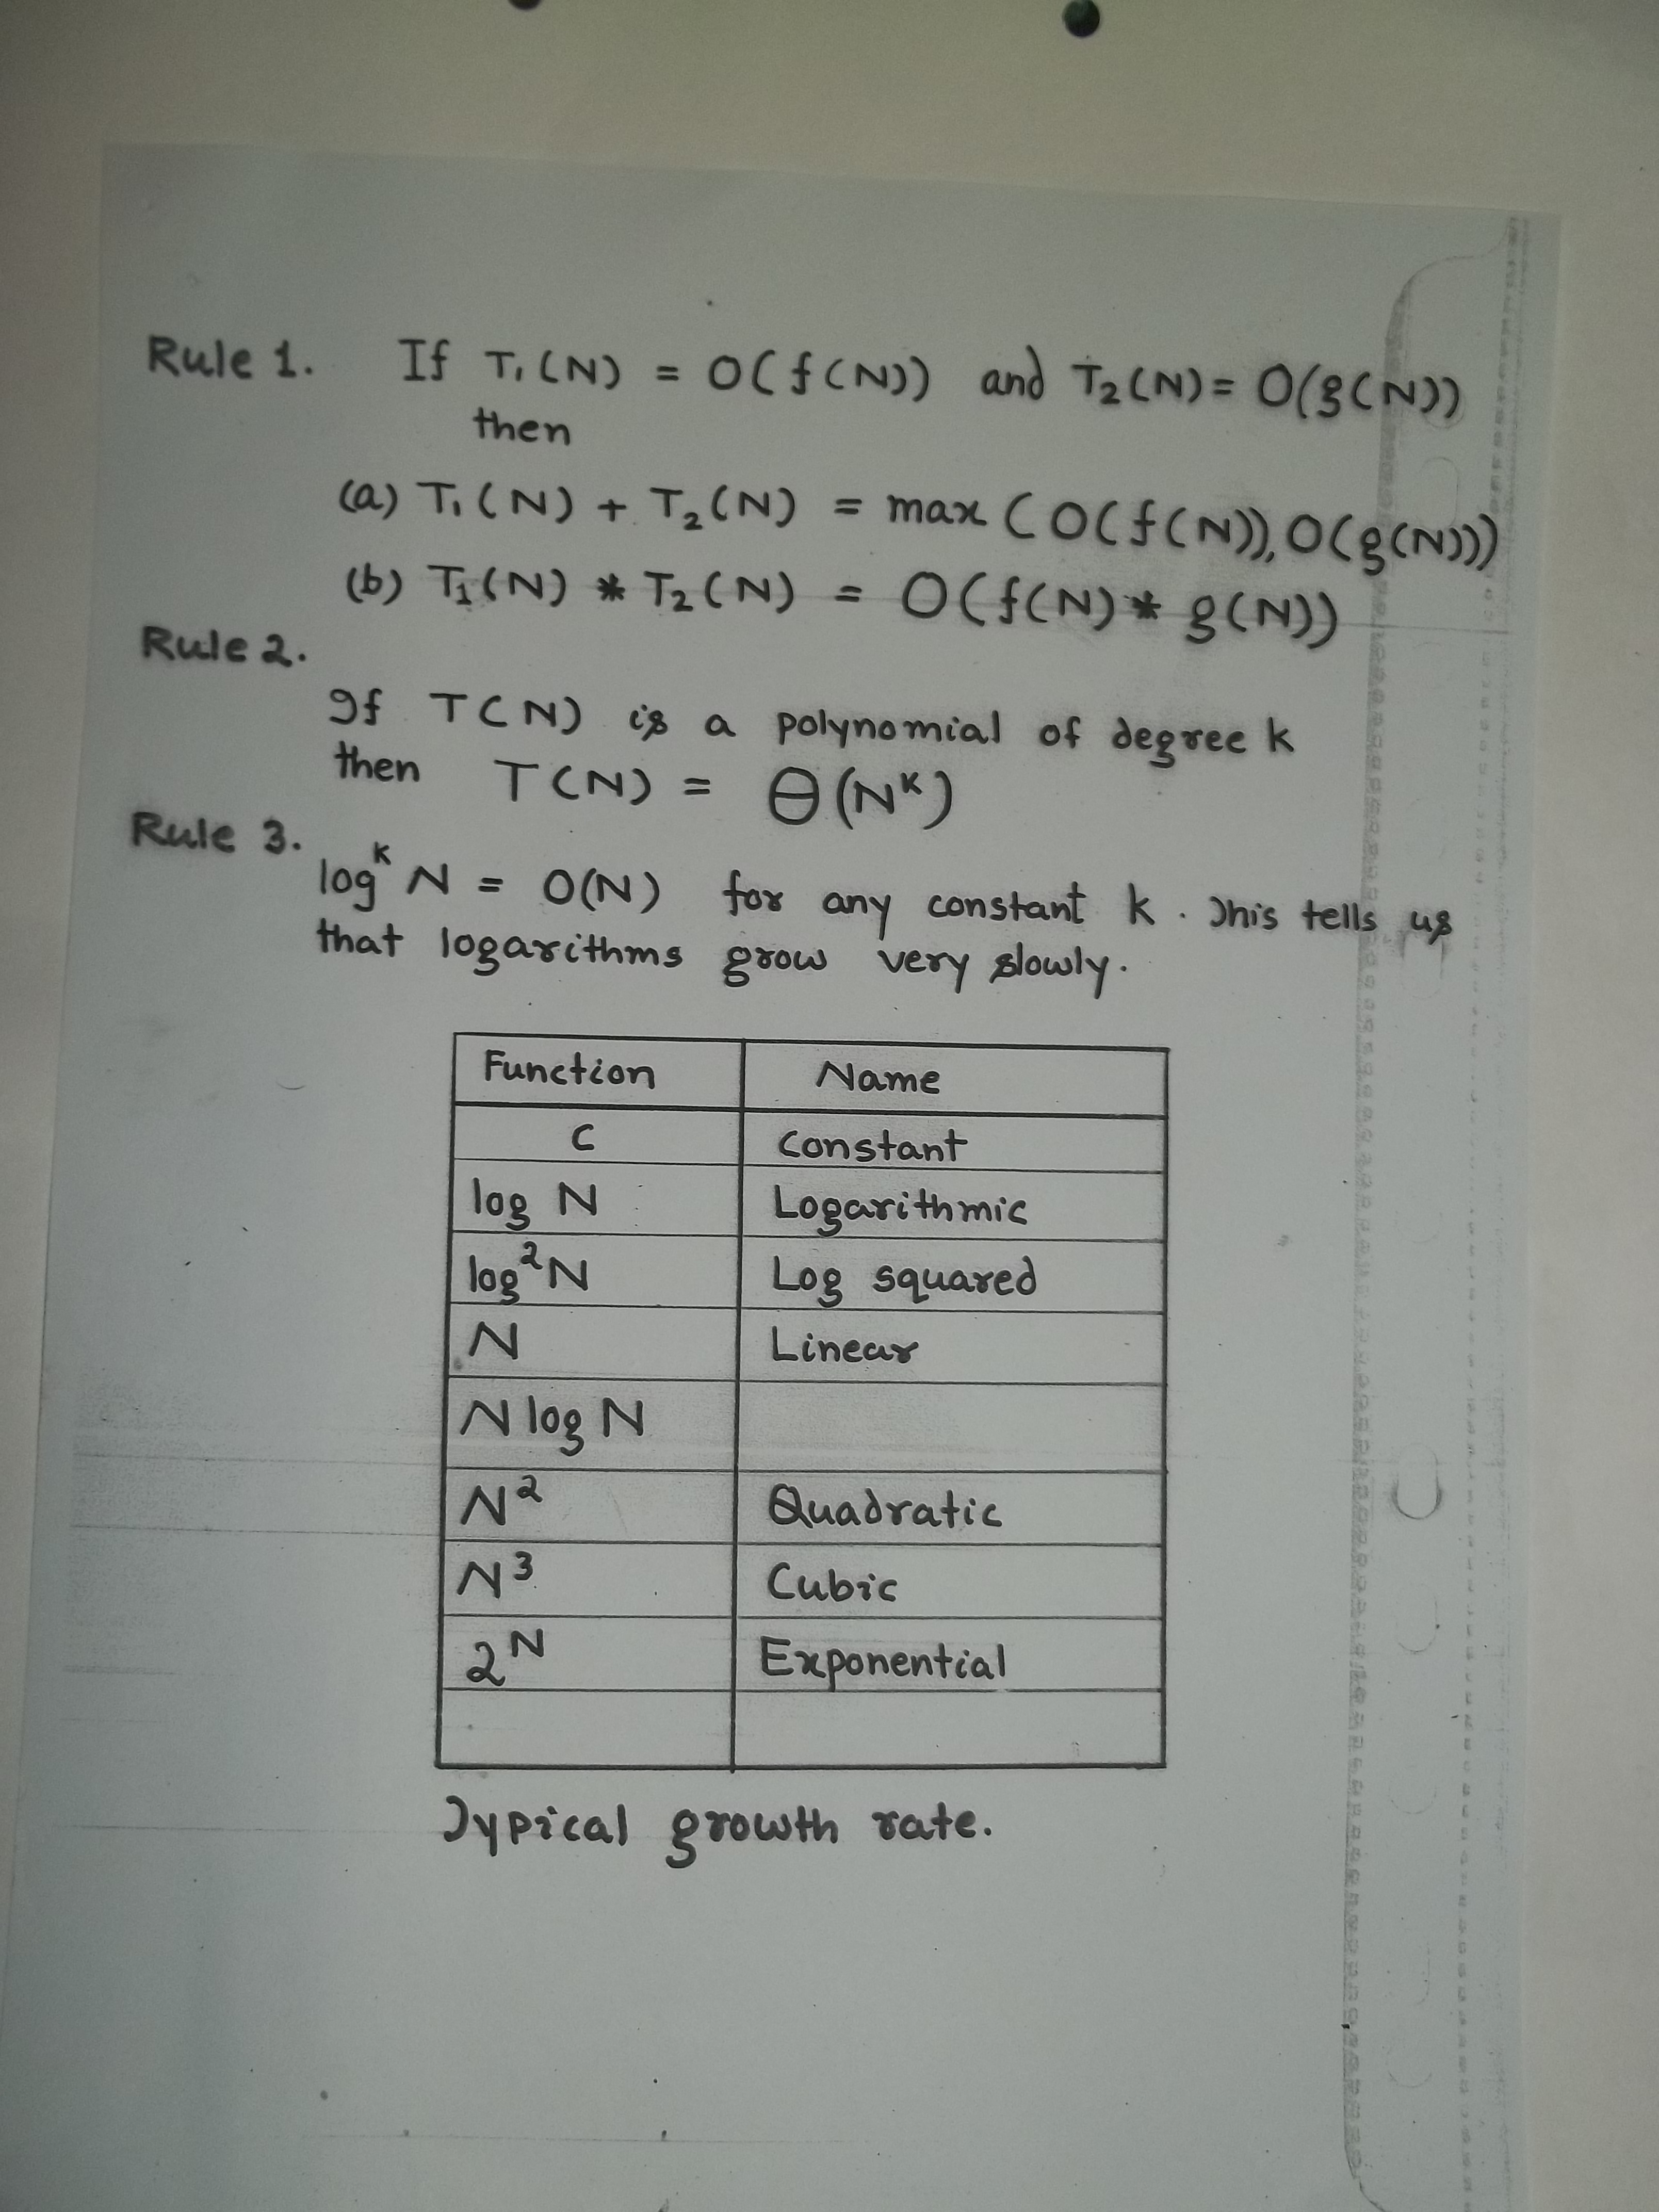 Rule 1. If T₁(N) = O(f(N)) and T₂(N) = O(g(N))
then
(a) T₁(N) + T₂(N) = max(O(f(N)), O(g(N)))
(b) T₁(N) * T₂(N) = O(f(N) * g(N))
Rule 2.
If T(N) is a polynomial of degree k
then T(N) = Θ(Nᵏ)
Rule 3.
logᵏ N = O(N) for any constant k. This tells us
that logarithms grow very slowly.
Function Name
C Constant
log N Logarithmic
log² N Log squared
N Linear
N log N
N² Quadratic
N³ Cubic
2ᴺ Exponential
Typical growth rate.